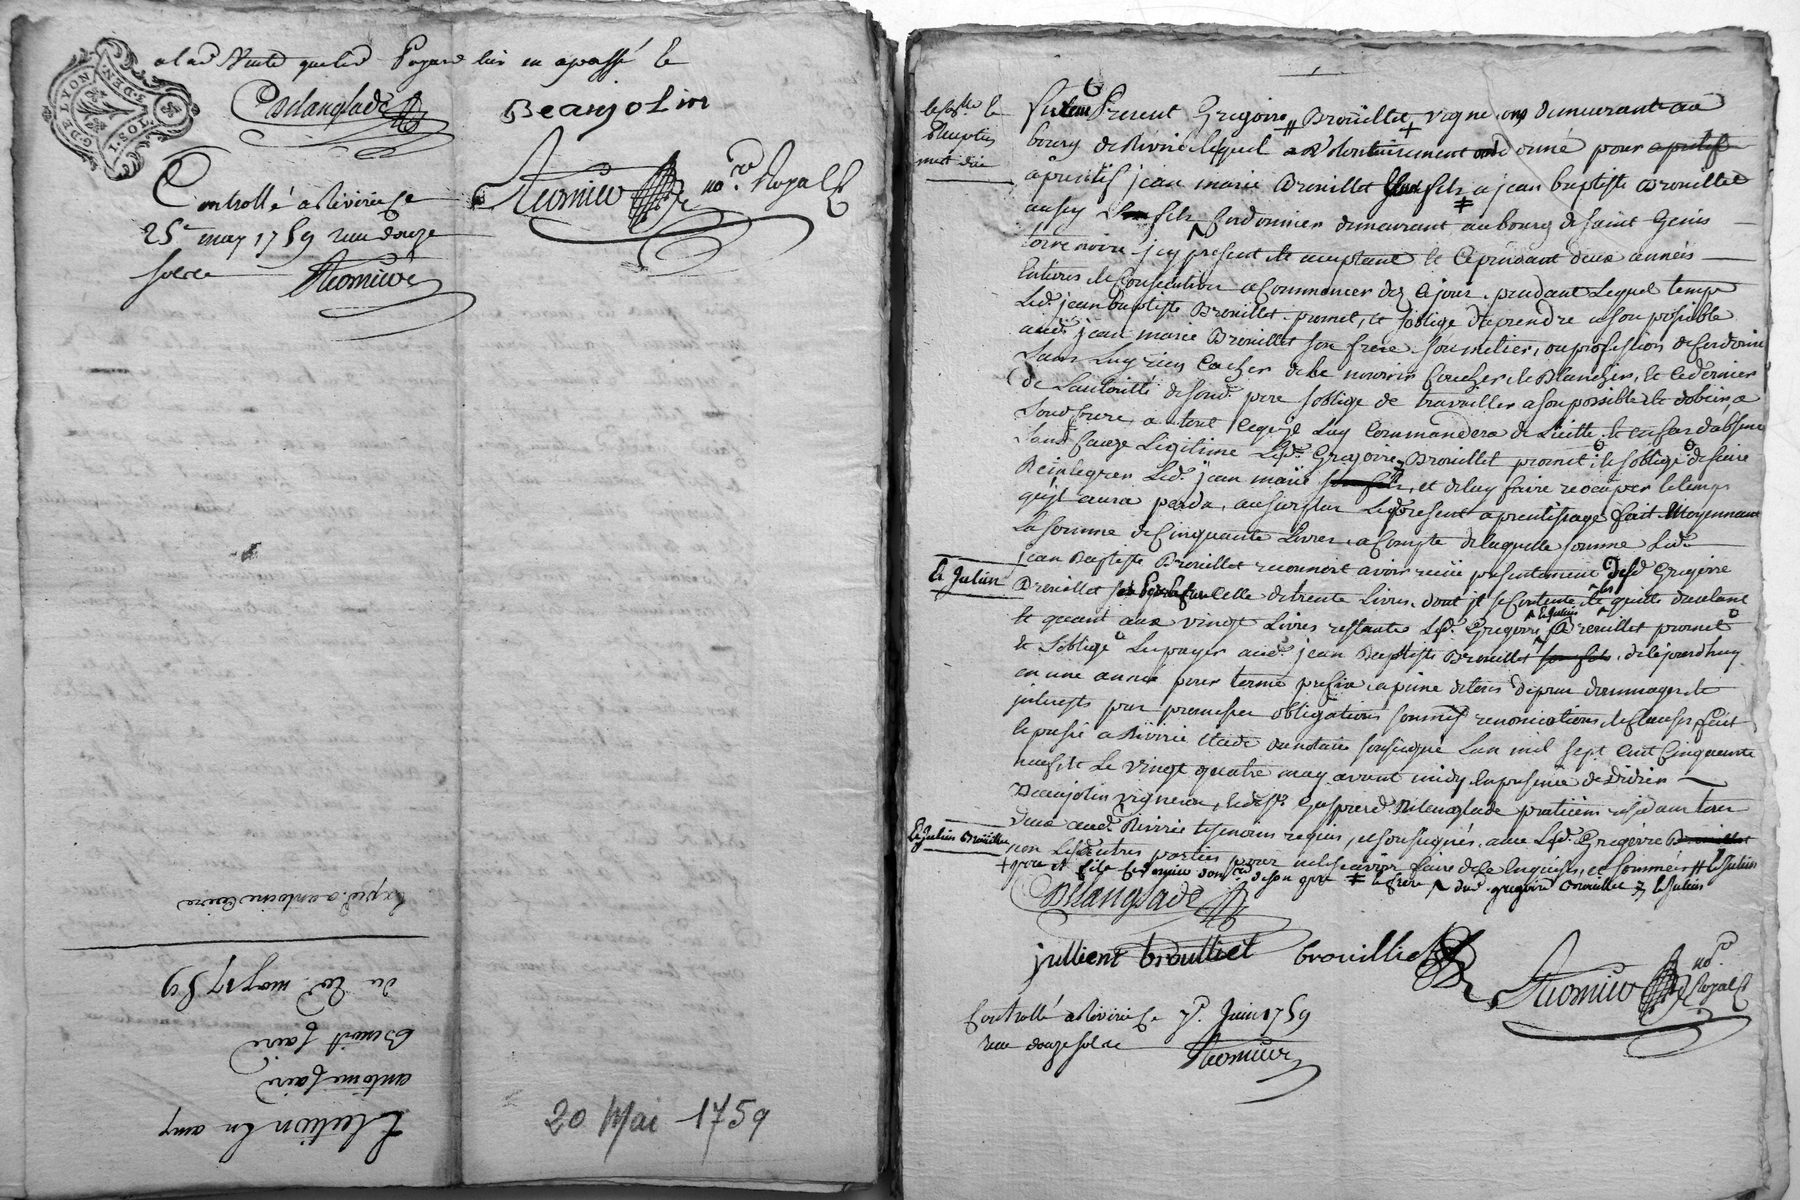 a lad Vente que led Payare luy en a passé le
Delanglade
Beaujolin
no.re Royal
Controllé a Riverie le
25e may 1759 reçu douze
sols
G. DE LYON
S. DEN.
1. SOL
Expéd. a antoine
du 20e may 1759
Benoit faire
antoine faire
Election en amy
20 Mai 1759
Fut Présent Gregoire # Broüillet + vigneron demeurant au
bourg de Riverie lequel a volontairement donné pour
aprentif jean marie Broüillet fils a jean baptiste Broüillet
aussy fils Cordonnier demeurant au bourg de Saint Genis
terre noire, icy present et acceptant et ce pendant deux années
Entieres et Consecutives a Commencer dez ce jour, pendant Lequel temps
Led. jean baptiste Broüillet promet, et s'oblige d'aprendre a son possible
aud. jean marie Broüillet son frere son metier, ou profession de Cordonnier
sans Luy rien Cacher de le nourrir Coucher et Blanchir, et Ce dernier
de L'autorité de sond. pere s'oblige de travailler a son possible et d'obeir a
sond frere, a tout Ce qu'il Luy Commandera de Licitte, et en cas d'absence
sans Cauze Legitime Led. Gregoire Broüillet promet, et s'oblige de faire
Reintegrer Led. jean marie, et de luy faire recouper le temps
qu'il aura perdu, au surplus Le present aprentissage fait Moyennant
La somme de Cinquante Livres, a Compte de laquelle somme Led.
jean Baptiste Broüillet reconnoit avoir reçu presentement dud. Gregoire
Le Julien
Broüillet Celle de trente Livres, dont il se Contente et quitte
et quant aux vingt Livres restantes Led. Gregoire Broüillet promet
et s'oblige Les payer aud. jean Baptiste Broüillet, de ce jourd'huy
en une année pour terme prefix, a peine de tous depens dommages et
interests par promesses obligations soumis renonciations et Clauses, fait
et passé a Riverie Etude du notaire soussigné L'an mil sept Cent Cinquante
neuf et Le vingt quatre may avant midy, en presence de Didier
Beaujolin vigneron, et de sr. Gaspard Delanglade praticien residants tous
deux aud. Riverie temoins requis, et soussignés, avec Led. Gregoire
Le Julien Broüillet
non Les autres parties pour ne le sçavoir faire de ce enquises, et sommées # Le Julien
Delanglade
jullient broulliet brouilliet
no.re Royal
Controllé a Riverie le 7e. Juin 1759
reçu douze sols